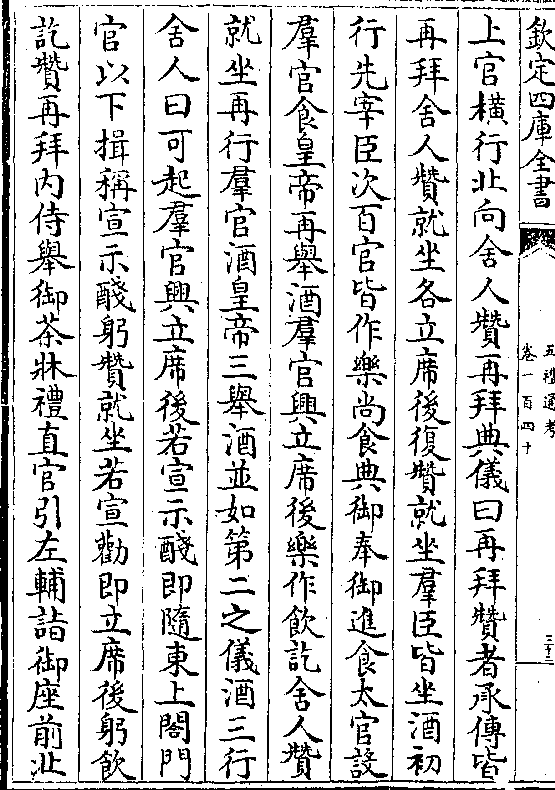 欽定四庫全書
五禮通考
卷一百四十
三十三
上官橫行北向舍人贊再拜典儀曰再拜贊者承傳皆
再拜舍人贊就坐各立席後復贊就坐羣臣皆坐酒初
行先宰臣次百官皆作樂尚食典御奉御進食太官設
羣官食皇帝再舉酒羣官興立席後樂作飲訖舍人贊
就坐再行羣官酒皇帝三舉酒並如第二之儀酒三行
舍人曰可起羣官興立席後若宣示醆即隨東上閤門
官以下揖稱宣示醆躬贊就坐若宣勸即立席後躬飲
訖贊再拜內侍舉御茶牀禮直官引左輔詣御座前北